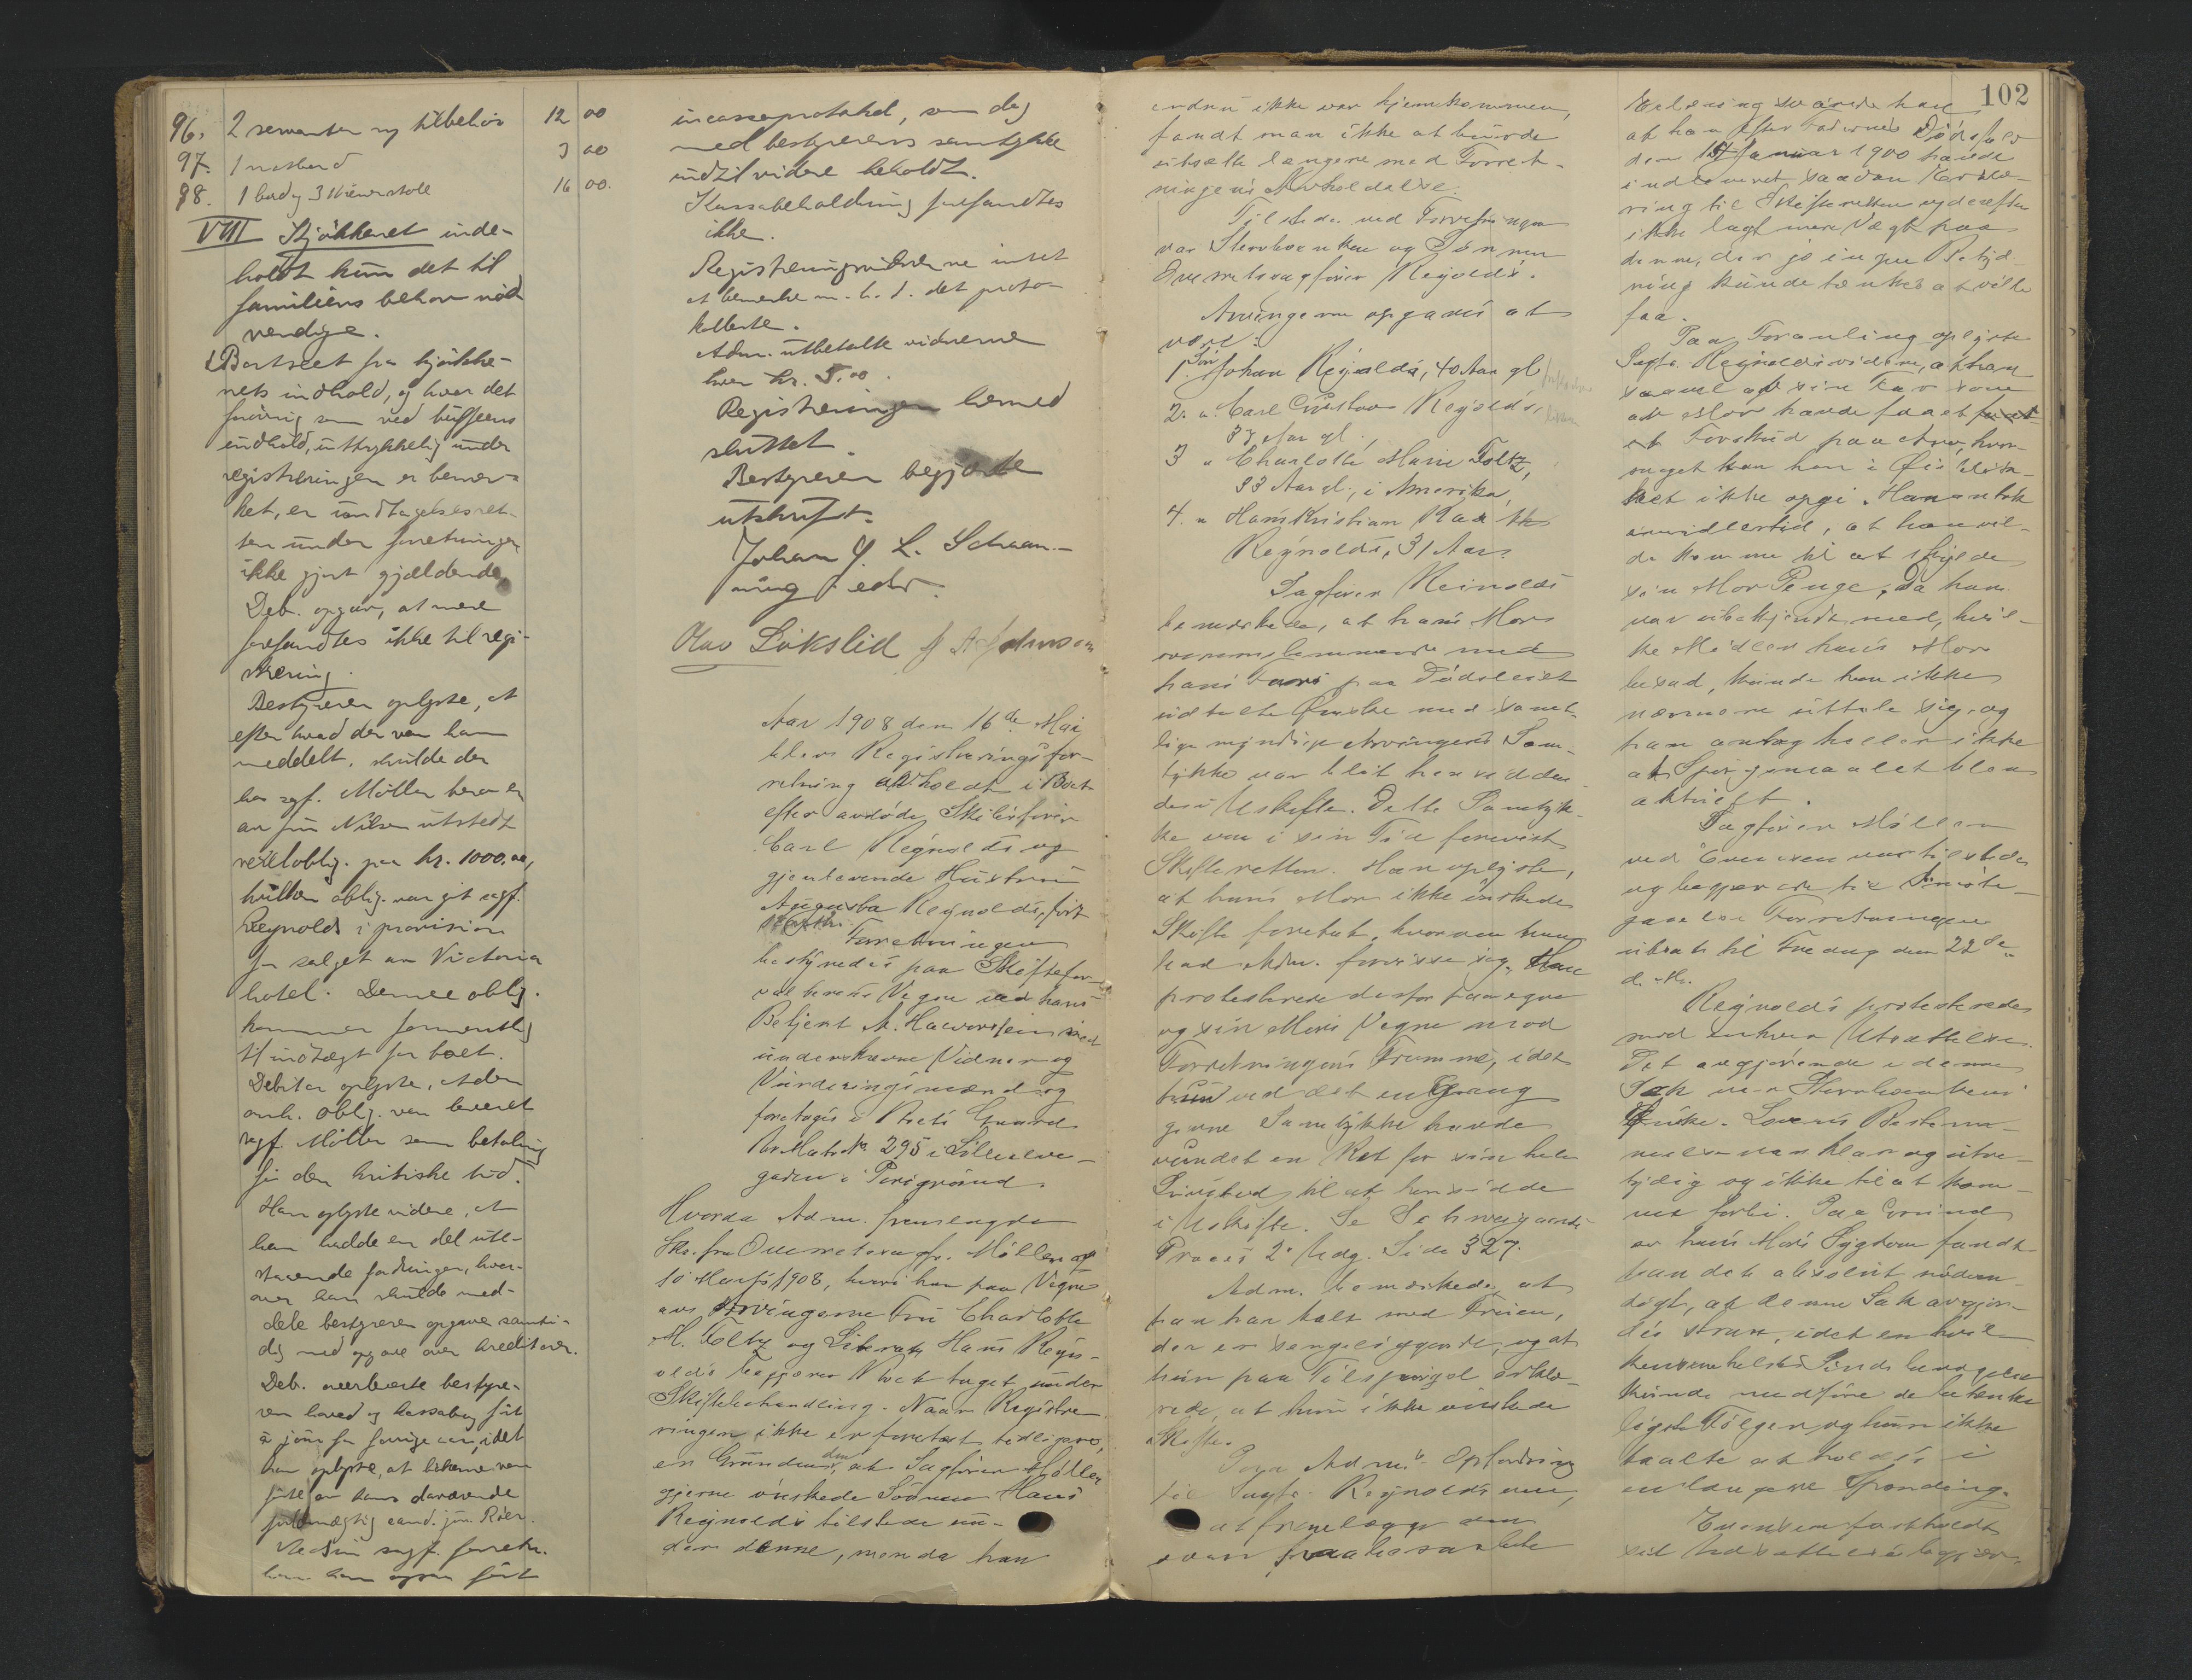 96. 2 servanter og tilbehør 12 00
97. 1 natbord 3 00
98. 1 bord og 3 stole 16 00.
VIII Kjøkkenet inde-
holdt kun det til
familiens behov nød
vendige.
Bortseet fra kjøkke-
nets indhold, og hvor det
forøvrig som ved buffeens
indhold, uttrykkelig under
registreringen er bemer-
ket, er undtagelsesret-
ten under forretningen
ikke gjort gjældende
Deb. opgav, at mere
forefandtes ikke til regi-
strering.
Bestyreren oplyste, at
efter hvad der var ham
meddelt, skulde der
hos sgf. Møller bero en
av Nilsen utstedt
obblig. paa kr. 1000.00,
hvilken oblig. var git sagf.
Reynolds i provision
for salget av Victoria
hotel. Denne oblig.
kommer formentlig
til indtægt for boet.
Debitor oplyste, at den
omh. oblig. var leveret
sgf. Møller som betaling
før den kritiske tid.
Han oplyste videre, at
han hadde en del ute-
staaende fordringer, hvor-
over han skulde med-
dele bestyreren opgave samti-
dig med opgave over kreditorer.
Deb. overleverte bestyre-
ren hoved og kassabog ført
à jour for forrige aar, idet
han oplyste, at bøkerne var
ført av hans daværende
fuldmægtig cand. jur. Röer.
Ved sin sagf. forretn.
har han ogsaa ført
incassoprotokol, som dog
med bestyrerens samtykke
indtil videre beholdt.
Kassabeholdning forefandtes
ikke.
Registreringsvidnerne intet
at bemerke m. h. t. det proto-
kollerte.
Adm. utbetalte vidnerne
hver kr. 5.00.
Registreringen hermed
sluttet.
Bestyreren begjærte
utskrift.
Johan L. Schaan-
ning edr.
Olav Lökslid A. Johnsen
Aar 1908 den 16de Mai
blev Registreringsfor-
retning avholdt i Boet
efter avdøde Skibsfører
Carl Reynolds og
gjenlevende Hustru
Augusta Reynolds, født
Forretningen
bestyredes paa Skiftefor-
valterens Vegne ved hans
Betjent A. Halvorsen med
underskrevne Vidner og
Vurderingsmænd og
foretages i Boets Gaard
Matr. No 295 i Lilleelve-
gaden i Porsgrund.
Hvorda Adm. fremlagde
Skr. fra Overretssagf. Møller af
10 Marts 1908, hvori han paa Vegne
av Arvingerne Fru Charlotte
M. Foltz og Literat Hans Reyn-
olds begjærer Boet taget under
Skiftebehandling. Naar Registre-
ringen ikke er foretat tidligere,
er Grunden den, at Sagfører Møller
gjerne ønskede Sønnen Hans
Reynolds tilstede un-
der denne, men da han
102
endnu ikke var hjemkommen,
fandt man ikke at burde
utsætte længere med Forret-
ningens Avholdelse.
Tilstede ved Forretningen
var Stervboenken og Sønnen
Overretssagfører Reynolds.
Arvingerne opgaves at
være:
1. Søn Johan Reynolds, 40 Aar gl.
2. " Carl Gustav Reynolds,
37 Aar gl.
3 " Charlotte Marie Foltz,
33 Aar gl., i Amerika,
4. " Hans Kristian
Reynolds, 31 Aar.
Sagfører Reinolds
bemerkede, at hans Mor
overensstemmende med
hans Fars paa Dødsleiet
udtalte Ønske med samt-
lige myndige Arvingers Sam-
tykke var blit hensiddende
i Uskifte. Dette Samtyk-
ke var i sin Tid forevist
Skifteretten. Han oplyste,
at hans Mor ikke ønskede
Skifte foretat, hvorom han
bad Adm. forvisse sig. Han
protesterede derfor paa egne
og sin Mors Vegne mod
Forretningens Fremme, idet
hun ved det en Gang
givne Samtykke havde
vundet en Ret for sin hele
Livstid til at hensidde
i Uskifte. Se Schweigaards
Proces 2. Udg. Side 327.
Adm. bemærkede, at
han har talt med Fruen,
der er sengeliggende, og at
hun paa Tilspørgsel erklæ-
rede, at hun ikke ønskede
Skifte.
Paa Adm.s Opfordring
til Sagf. Reynolds om,
at fremlægge den
ovenfor paaberaabte
Erklæring svarede han
at han efter Faderens Dødsfald
den 15 Januar 1900 havde
indleveret saadan Erklæ-
ring til Skifteretten og derefter
ikke lagt mere Vægt paa
denne, der jo ingen Betyd-
ning kunde tænkes at ville
faa.
Paa Foranledning oplyste
Sagf. Reynolds videre, at han
saavel af sin Far som
av Mor havde faaet
et Forskud paa Arv, hvor-
meget kan han i Øieblik-
ket ikke opgi. Han antok
imidlertid, at han vil-
de komme til at skylde
sin Mor Penge, da han
var ubekjendt med, hvil-
ke Midler hans Mor
besad, kunde han ikke
nærmere uttale sig, og
han antog heller ikke
at Spørgsmaalet blev
aktuelt.
Sagfører Møller
ved Evensen var tilstede
og begjærede til
Forretningen
utsat til Fredag den 22de
d. M.
Reynolds protesterede
mod enhver Utsættelse.
Det avgjørende i denne
Sak var Stervboenkens
Ønske. Lovens Bestem-
melse var klar og utve-
tydig og ikke til at kom-
me forbi. Paa Grund
av hans Mors Sygdom fandt
han det absolut nødven-
digt, at denne Sak avgjør-
des strax, idet en hvil-
kensomhelst Sindsbevægelse
kunde medføre de betænke-
ligste Følger og hun ikke
taalte at holdes i
en længere Spænding.
Evensen fastholdt
sit Utsættelsesbegjær-